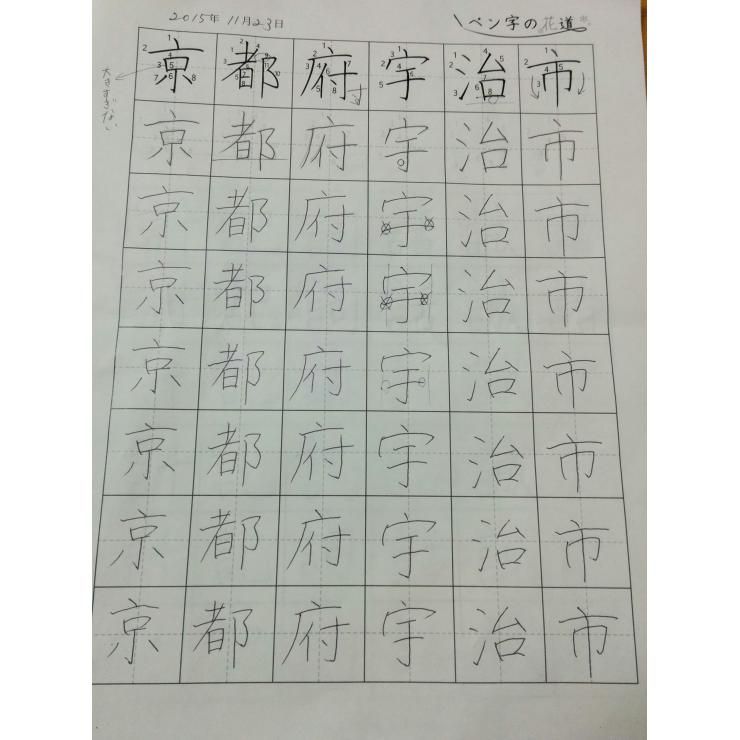 2015年 11月23日
ペン字の花道
大きすぎない
京都府宇治市
寸
京都府宇治市
京都府宇治市
京都府宇治市
京都府宇治市
京都府宇治市
京都府宇治市
京都府宇治市